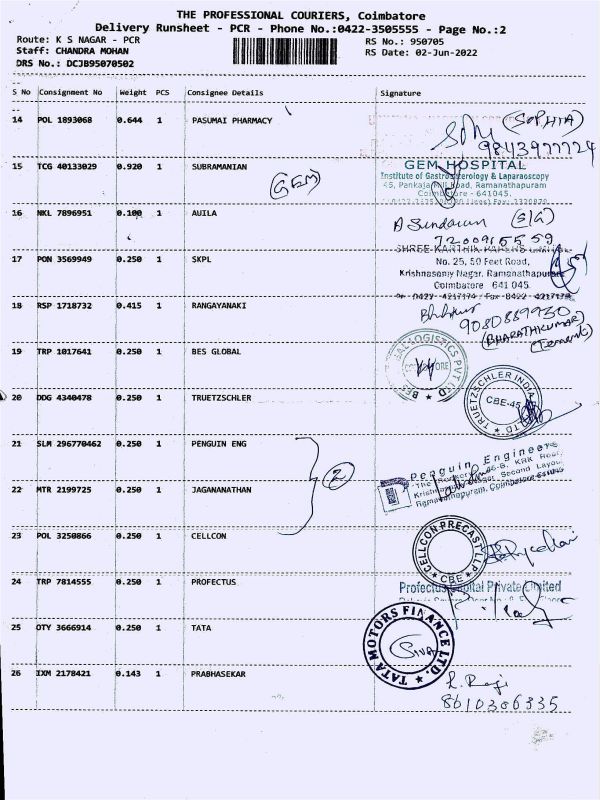 THE PROFESSIONAL COURIERS, Coimbatore
Delivery Runsheet - PCR - Phone No.:0422-3505555 - Page No.:2
Route: K S NAGAR - PCR
RS No.: 950705
Staff: CHANDRA MOHAN
RS Date: 02-Jun-2022
DRS No.: DCJB95070502
S No Consignment No Weight PCS Consignee Details Signature
14 POL 1893068 0.644 1 PASUMAI PHARMACY
(SOPHIA)
9843977724
15 TCG 40133029 0.920 1 SUBRAMANIAN
(GEM)
GEM HOSPITAL
Institute of Gastroenterology & Laparoscopy
45, Pankaja Mill Road, Ramanathapuram
Coimbatore - 641045.
16 NKL 7896951 0.100 1 AUILA
A Sundaram (S/G)
7200915559
17 PON 3569949 0.250 1 SKPL
No. 25, 50 Feet Road,
Krishnasamy Nagar, Ramanathapuram
Coimbatore 641 045.
Ph - 0422 - 4217174 / Fax - 0422 - 4217178
18 RSP 1718732 0.415 1 RANGAYANAKI
9080889930
(BHARATHKUMAR)
19 TRP 1017641 0.250 1 BES GLOBAL
BES GLOBAL LOGISTICS PVT LTD
COIMBATORE
20 DDG 4340478 0.250 1 TRUETZSCHLER
TRUETZSCHLER INDIA
LTD.
CBE-45
21 SLM 296770462 0.250 1 PENGUIN ENG
2
Penguin Engineers
KRK Road
Krishnasamy Nagar Second Layout
Ramanathapuram, Coimbatore-641045
22 MTR 2199725 0.250 1 JAGANANATHAN
23 POL 3250866 0.250 1 CELLCON
CELLCON PRECAST LLP
CBE
24 TRP 7814555 0.250 1 PROFECTUS
Profectus Capital Private Limited
25 OTY 3666914 0.250 1 TATA
TATA MOTORS FINANCE LTD.
SIVA
26 IXM 2178421 0.143 1 PRABHASEKAR
L. Raji
8610306335